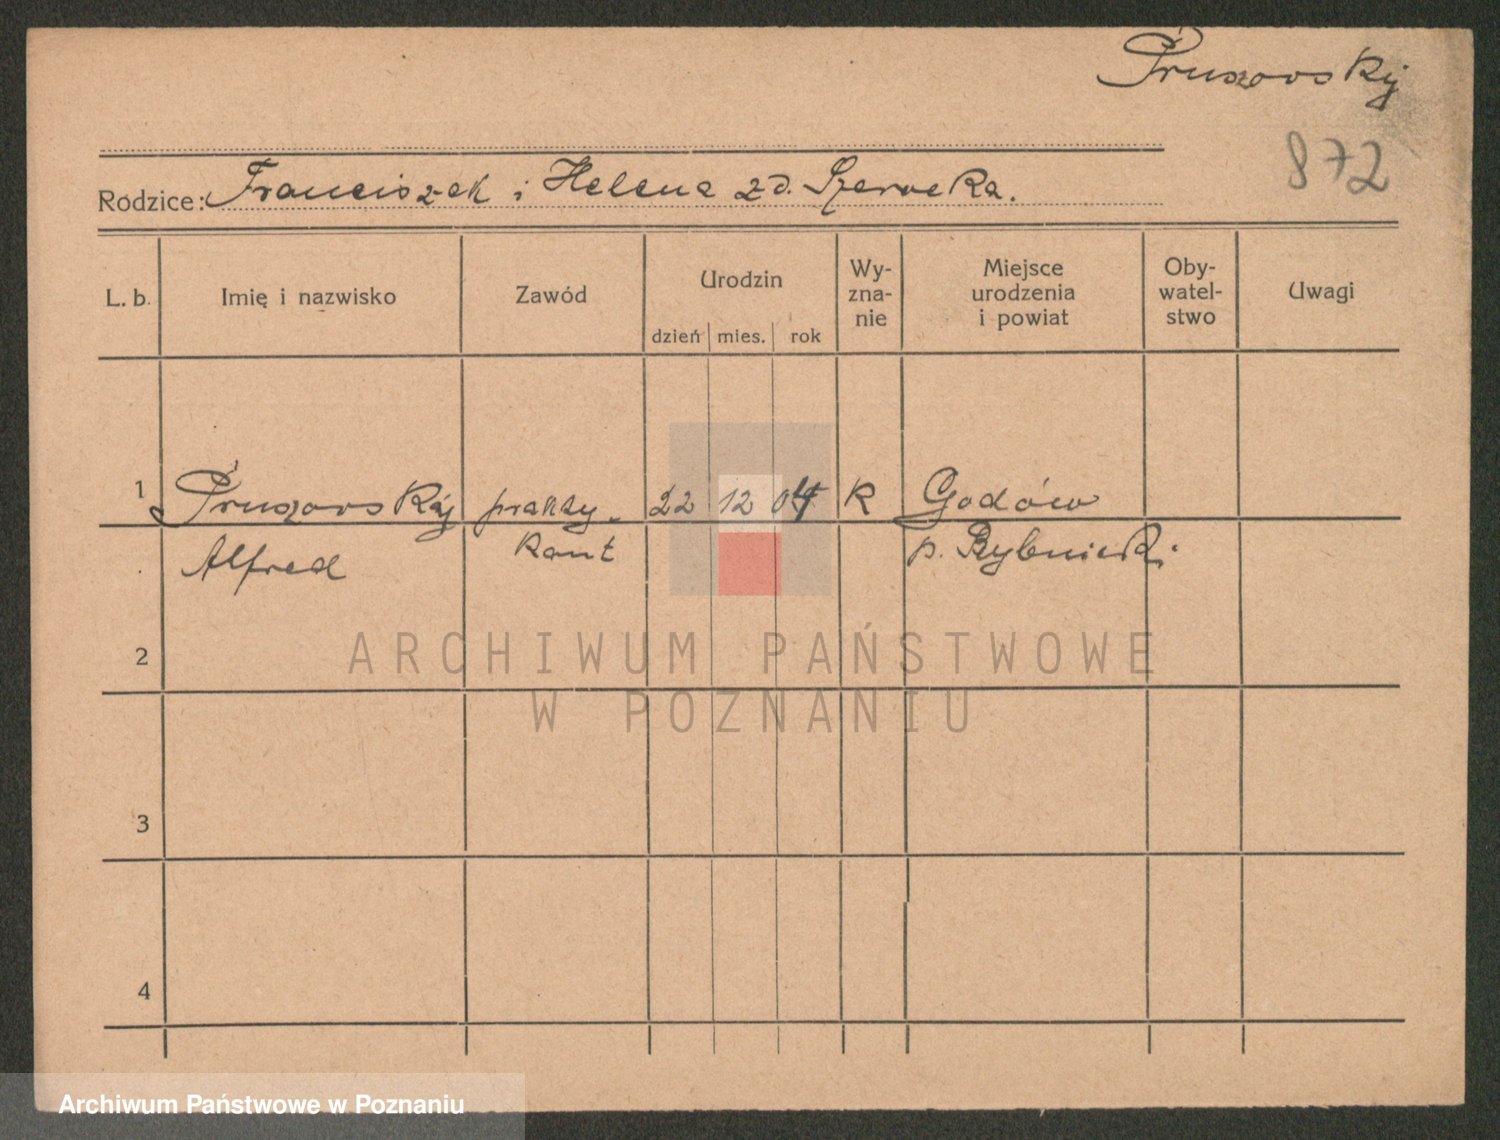 Pruszovskij
872
Rodzice: Franciszek i Helena zd. Szerocka.
L. b. Imię i nazwisko Zawód Urodzin dzień mies. rok Wyznanie Miejsce urodzenia i powiat Obywatelstwo Uwagi
1 Pruszovskij prakty- 22 12 04 K Godów
Alfred kant p. Rybnicki.
2
ARCHIWUM PAŃSTWOWE
W POZNANIU
3
4
Archiwum Państwowe w Poznaniu